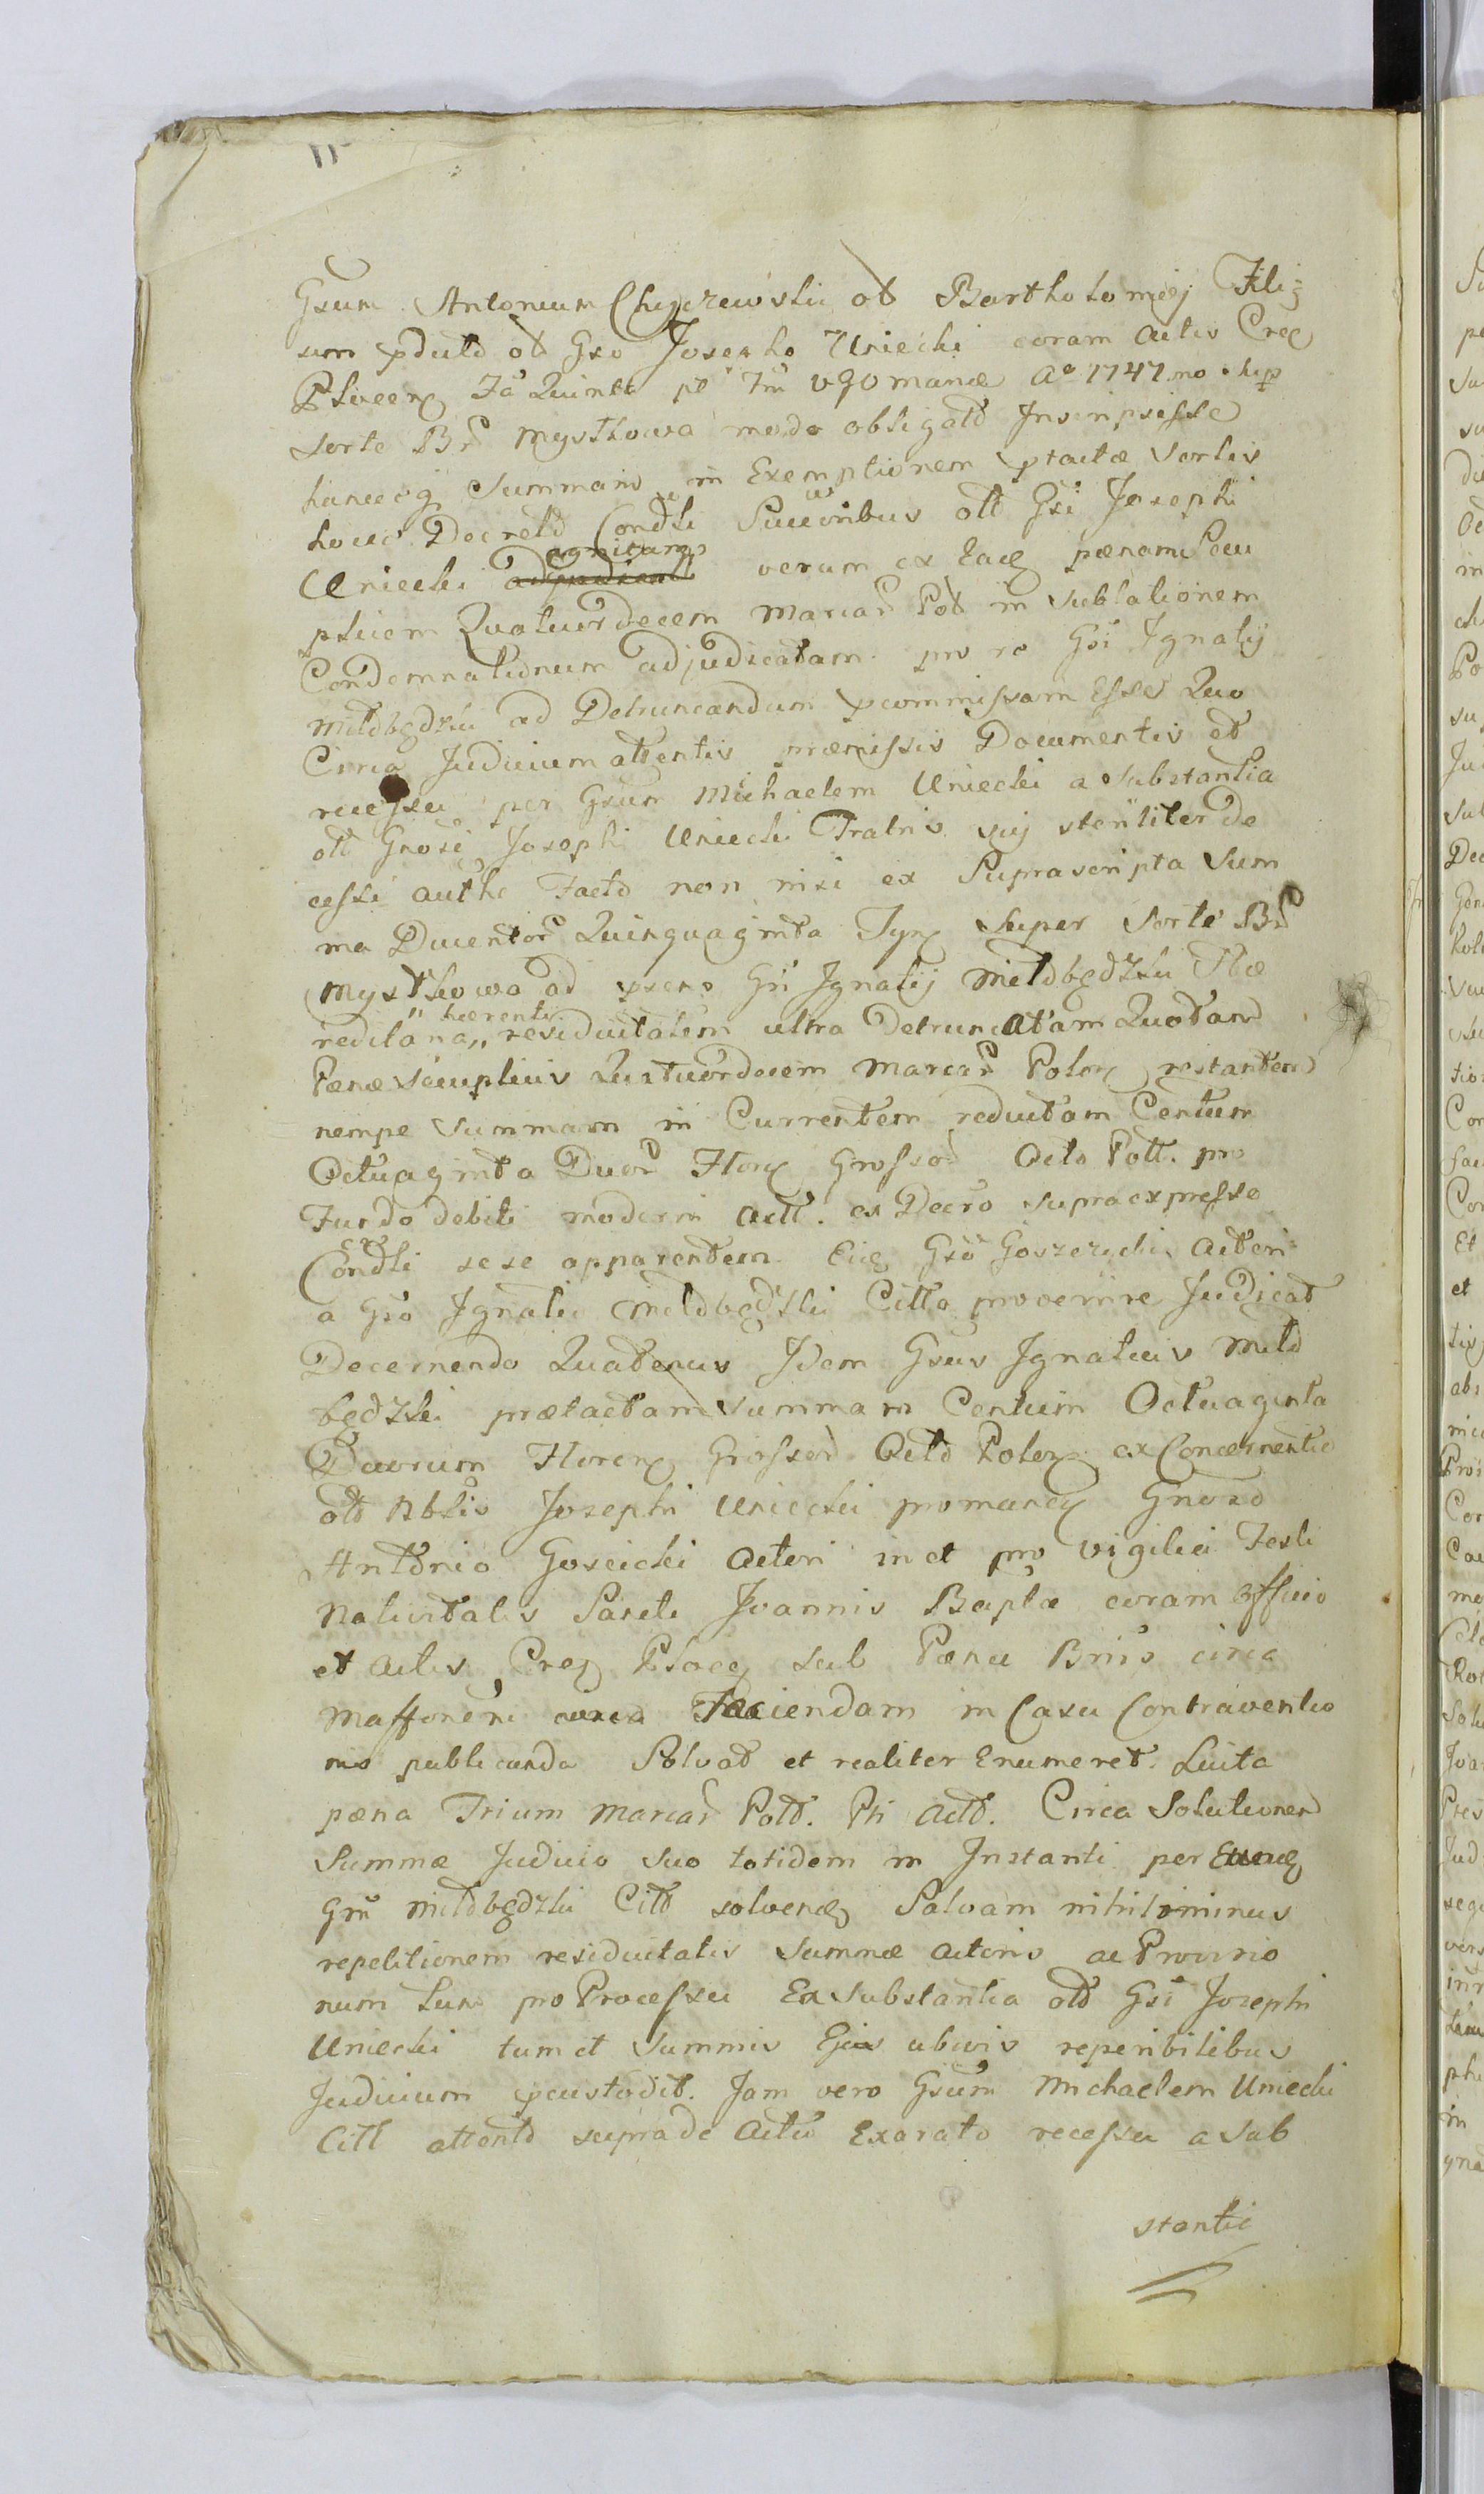 Gsum Antonium Chyczewski ol Bartholomei Filij
sum pdulo ol Gso Josepho Uniecki coram Actis Creg
Plocen Fa Quinta pt Fm vgomanæ A° 1747mo hip
Sorte Br Mystkowa modo obligato Inscripsisse
hancecq Summam in Exemptionem ptactæ Sortis
hocce Decreto Condli Succoribus oll Gsi Josephi
Uniecki agnitam verum ex Eaq pænam Secu
plicem Quatuordecem Marcar Pol in Sublationem
Condemnationum adjudicatam pro ro Gsi Ignatij
Miłobędzki ad Detruncandum pcommissam Esse Quo
Circa Judicium attentis præmissis Documentis et
recessu per Gsum Michaelem Uniecki a Substantia
oll Gnosi Josephi Uniecki Fratris sui steriliter de
cessi authe Facto non nisi ex Suprascripta Sum
ma Ducentor Quinquaginta Tyn Super Sorte Br
Mystkowa ad psens Gsi Ignatij Miłobędzki Hæ
reditaria hærenti residuitatem ultra Detruncatam Quotam
Pænæ Sécuplicis Quatuordecem Marcar Polon restantem
nempe Summam in Currentem reductam Centum
Octuaginta Duor Floren Grossor Octo Poll. pro
Fundo debiti moderni Actt. ex Decro supraexpresso
Condli sese apparentem Eiq Gso Goszczycki Actori
a Gso Ignatio Miłobędzki Citto provenire Judicat
Decernendo Quatenus Idem Gsus Ignatius Miło
będzki prætactam Summam Centum Octuaginta
Duorum Floren Grossor Octo Polon ex Concernentia
oll Nblis Josephi Uniecki promanen Gnoso
Antonio Goscicki Actori in et pro vigilia Festi
Nativitatis Sancti Joannis Baptæ coram officio
et Actis Creg Plocen sub Pæna Bnis circa
Maffonem Faciendam in Casu Contraventio
nis publicanda Solvat et realiter Enumeret. Luita
pæna Trium Marcar Poll. Pti Actt. Circa Solutionem
Summæ Judicio suo totidem in Instanti per Eumq
Gsm Miłobędzki Citt solvenq Salvam nihilominus
repetitionem residuitatis Summæ Actoris ac Provisio
num tum pro Processu Ex Substantia oll Gsi Josephi
Uniecki tum et Summis Ejus ubivis reperibilibus
Judicium pcustodit. Jam vero Gsum Michaelem Uniecki
Citt attento supra de Actu Exarato recessu a Sub
stantia